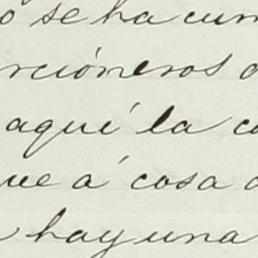 o se ha cum
rcioneros
aquí la co
ue á cosa
hay una